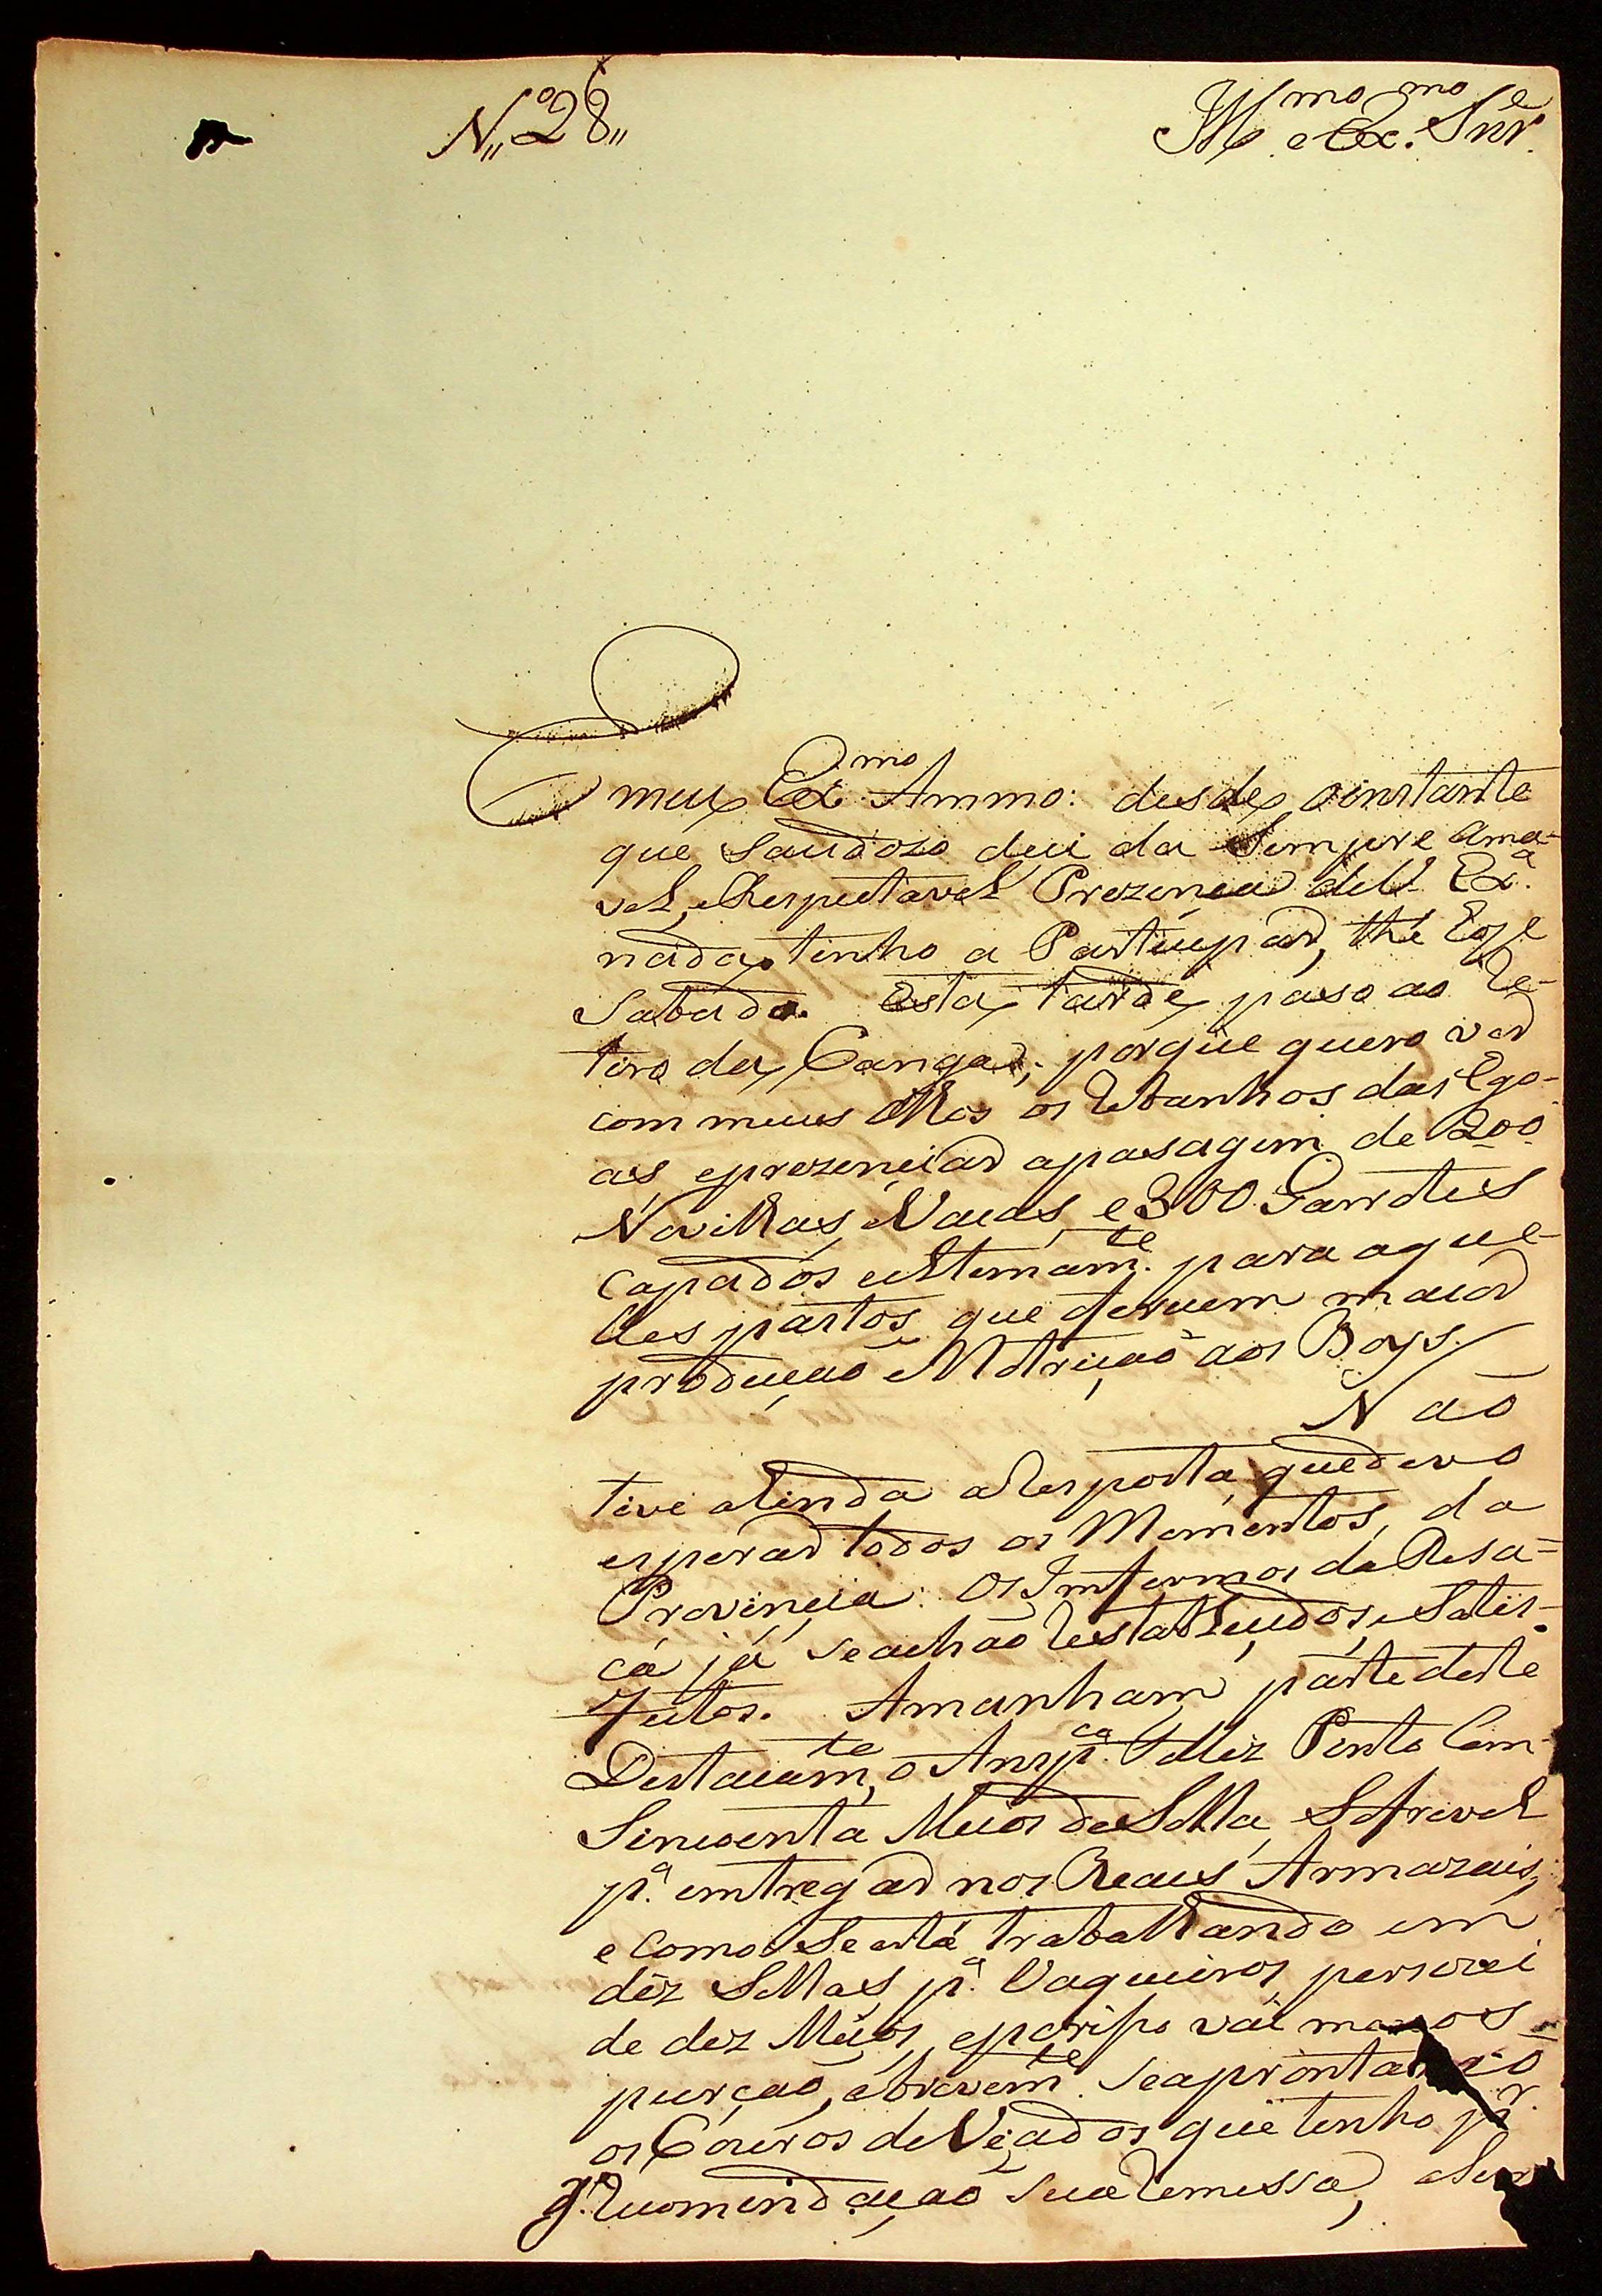 N.º 28
Ill.mo e Ex.mo Snr.e
meu Ex.mo Ammo: desde oinstante
que saudozo deci da Sempre Ama-
vel, eRespeitavel Prezença deV. Ex.a
nada tenho a Participar, thé Hoje
Sabado. Esta tarde paso ao Re-
tiro da Canga; porque quero ver
com meus olhos os Rebanhos das Ego-
as, eprezenciar apasagem de 200
Novilhas, Vacas, e 300 Garrotes
capados ultimam.te para aque-
les pastos que deruem maior
produção eNotrição aos Boys.
Naõ
tive ainda aResposta, quedevo
esperar todos os Momentos, da
Provincia: Os Imfermos da Resa-
cá já seachaõ Restablecidos, eSatis-
feitos. Amanham parte deste
Destacam.te o Ansp.ca Feliz Pinto Com
Sincoenta Meios deSolla, Sofrivel
p.a emtregar nos Reaes Armazais,
e como Se está trabalhando em
déz Sellas p.a Vaqueiros, persizei
de dez Meios, eporiso vai menos
purçaõ, ebrevem.te seaprontaraõ
os Couros deVeados que tenho p.r
g.de Recomendaçaõ sua Remessa, eSem